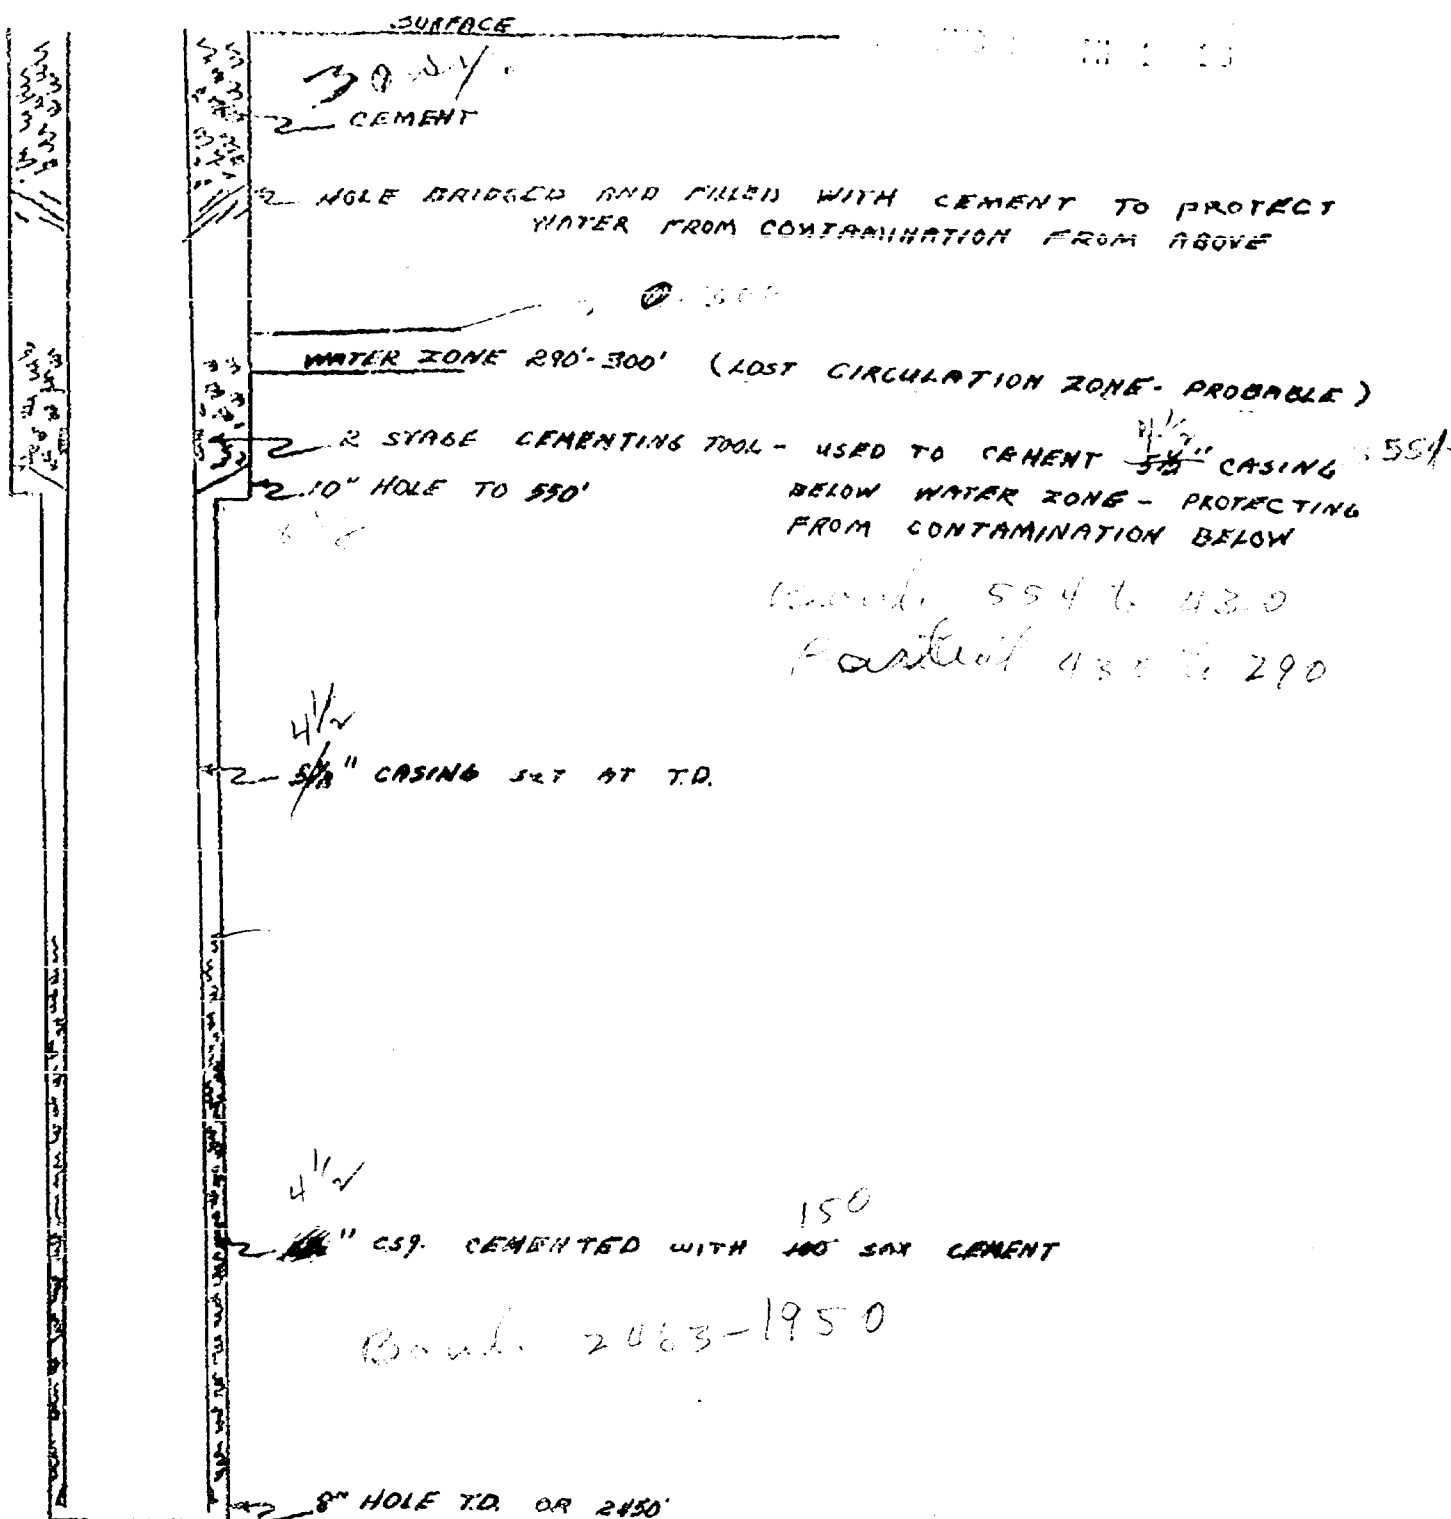 SURFACE
30
CEMENT
HOLE BRIDGED AND FILLED WITH CEMENT TO PROTECT
WATER FROM CONTAMINATION FROM ABOVE
300
WATER ZONE 290'-300' (LOST CIRCULATION ZONE - PROBABLE)
4 1/2
2 STAGE CEMENTING TOOL - USED TO CEMENT 5 1/2" CASING
BELOW WATER ZONE - PROTECTING
FROM CONTAMINATION BELOW
10" HOLE TO 550'
Bond. 554 to 430
Partial 430 to 290
4 1/2
" CASING SET AT T.D.
4 1/2
" CSG. CEMENTED WITH 100 SAX CEMENT
150
Bond. 2463-1950
8" HOLE T.D. OR 2450'